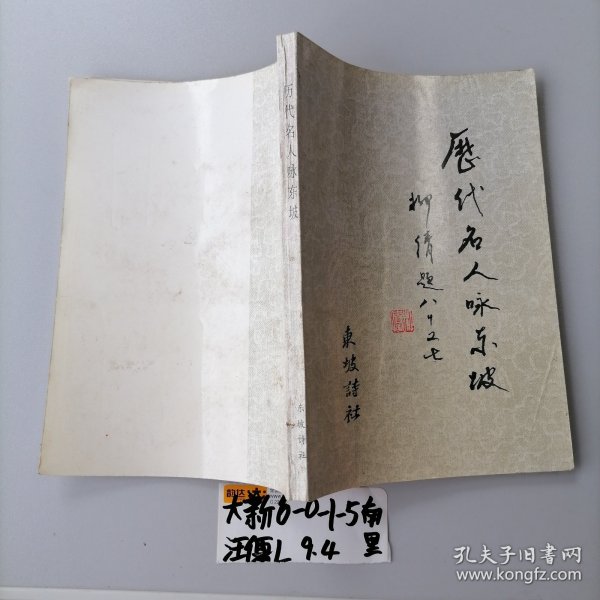 历代名人咏东坡
东坡诗社
歷代名人咏东坡
柳倩题八十又七
東坡詩社
韵达
大新6-0-1-5南
汪僡L 9.4 里
孔夫子旧书网
www.kongfz.com